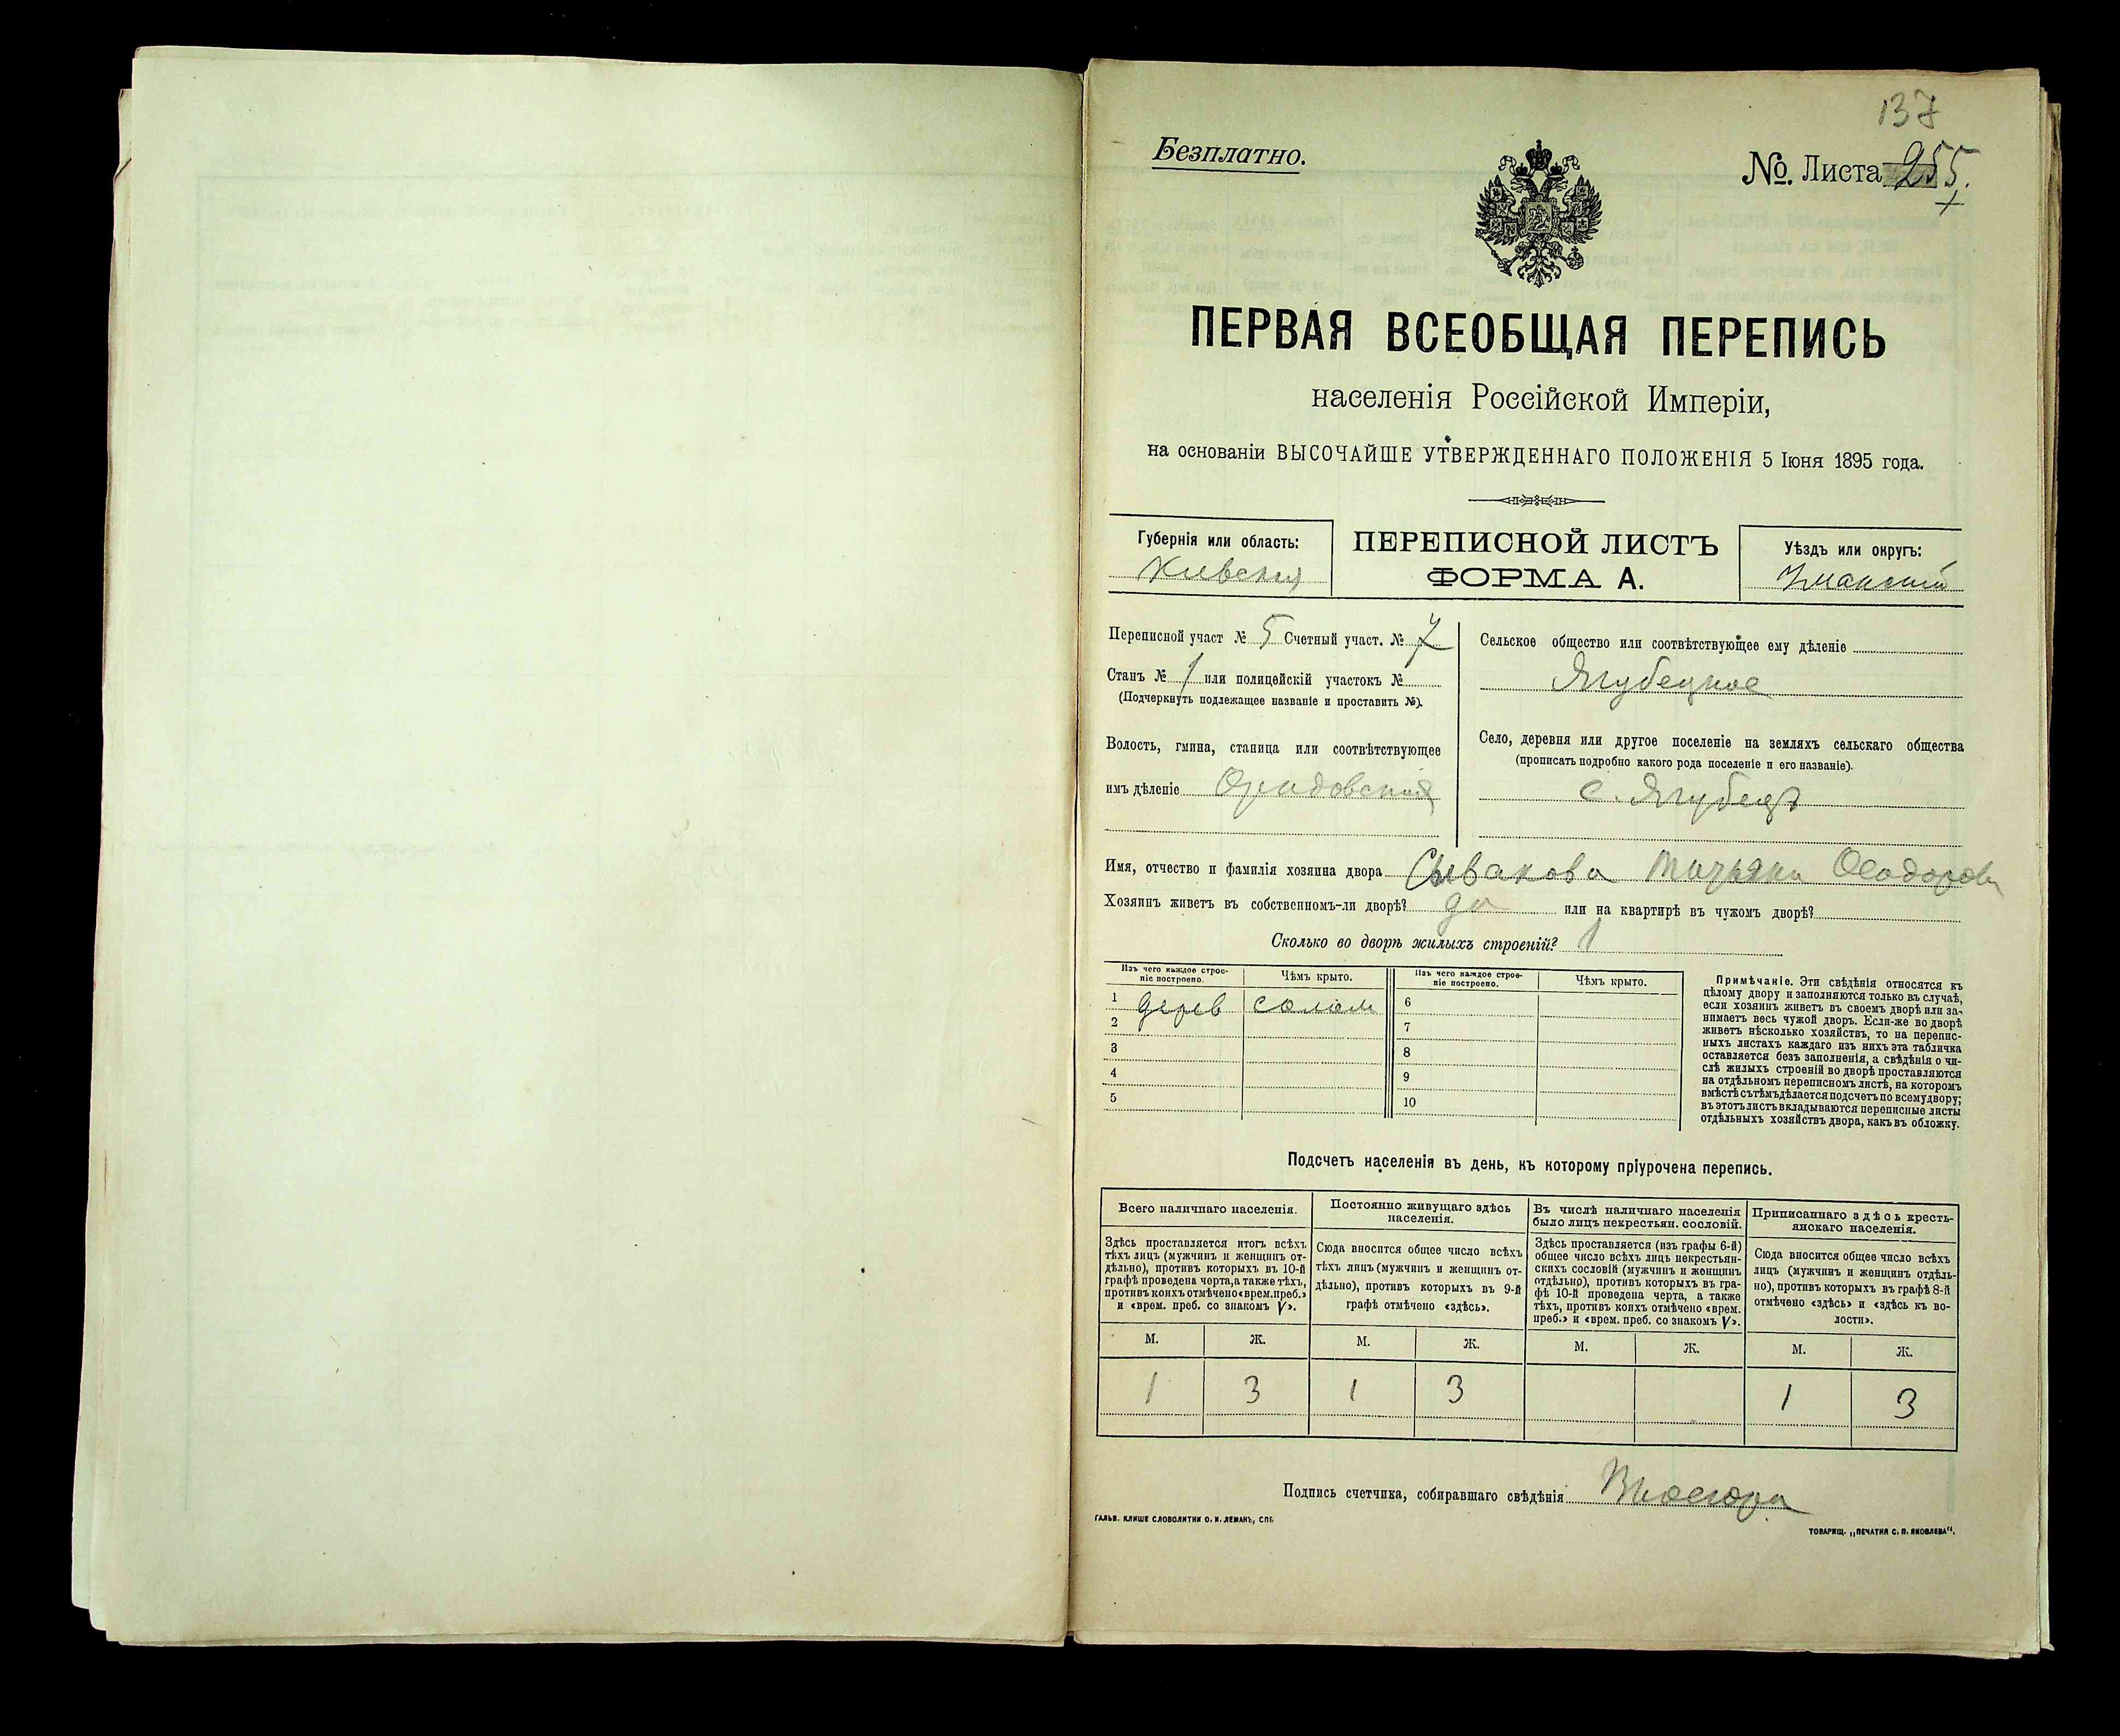 137
Безплатно.
№. Листа 255.
ПЕРВАЯ ВСЕОБЩАЯ ПЕРЕПИСЬ
населенія Россійской Имперіи,
на основаніи ВЫСОЧАЙШЕ УТВЕРЖДЕННАГО ПОЛОЖЕНІЯ 5 Іюня 1895 года.
Губернія или область:
Киевская
ПЕРЕПИСНОЙ ЛИСТЪ
ФОРМА А.
Уѣздъ или округъ:
Уманский
Переписной участ № 5 Счетный участ. № 7
Станъ № 1 или полицейскій участокъ №
(Подчеркнуть подлежащее названіе и проставить №).
Волость, гмина, станица или соотвѣтствующее
имъ дѣленіе Орадовская
Сельское общество или соотвѣтствующее ему дѣленіе
Ягубецкое
Село, деревня или другое поселеніе на земляхъ сельскаго общества
(прописать подробно какого рода поселеніе и его названіе).
с. Ягубецъ
Имя, отчество и фамилія хозяина двора Сывакова
Хозяинъ живетъ въ собственномъ-ли дворѣ? да или на квартирѣ въ чужомъ дворѣ?
Сколько во дворѣ жилыхъ строеній? 1
Изъ чего каждое строе-
ніе построено.
Чѣмъ крыто.
Изъ чего каждое строе-
ніе построено.
Чѣмъ крыто.
1 дерев солом
2
3
4
5
6
7
8
9
10
Примѣчаніе. Эти свѣдѣнія относятся къ
цѣлому двору и заполняются только въ случаѣ,
если хозяинъ живетъ въ своемъ дворѣ или за-
нимаетъ весь чужой дворъ. Если-же во дворѣ
живетъ нѣсколько хозяйствъ, то на перепис-
ныхъ листахъ каждаго изъ нихъ эта табличка
оставляется безъ заполненія, а свѣдѣнія о чи-
слѣ жилыхъ строеній во дворѣ проставляются
на отдѣльномъ переписномъ листѣ, на которомъ
вмѣстѣ съ тѣмъ дѣлается подсчетъ по всему двору;
въ этотъ листъ вкладываются переписные листы
отдѣльныхъ хозяйствъ двора, какъ въ обложку.
Подсчетъ населенія въ день, къ которому пріурочена перепись.
Всего наличнаго населенія.
Здѣсь проставляется итогъ всѣхъ
тѣхъ лицъ (мужчинъ и женщинъ от-
дѣльно), противъ которыхъ въ 10-й
графѣ проведена черта, а также тѣхъ,
противъ коихъ отмѣчено «врем. преб.»
и «врем. преб. со знакомъ V».
Постоянно живущаго здѣсь
населенія.
Сюда вносится общее число всѣхъ
тѣхъ лицъ (мужчинъ и женщинъ от-
дѣльно), противъ которыхъ въ 9-й
графѣ отмѣчено «здѣсь».
Въ числѣ наличнаго населенія
было лицъ некрестьян. сословій.
Здѣсь проставляется (изъ графы 6-й)
общее число всѣхъ лицъ некрестьян-
скихъ сословій (мужчинъ и женщинъ
отдѣльно), противъ которыхъ въ гра-
фѣ 10-й проведена черта, а также
тѣхъ, противъ коихъ отмѣчено «врем.
преб.» и «врем. преб. со знакомъ V».
Приписаннаго здѣсь кресть-
янскаго населенія.
Сюда вносится общее число всѣхъ
лицъ (мужчинъ и женщинъ отдѣль-
но), противъ которыхъ въ графѣ 8-й
отмѣчено «здѣсь» и «здѣсь къ во-
лости».
М. Ж. М. Ж. М. Ж. М. Ж.
1 3 1 3 1 3
Подпись счетчика, собиравшаго свѣдѣнія
ГАЛЬВ. КЛИШЕ СЛОВОЛИТНИ О. И. ЛЕМАНЪ, СПБ.
ТОВАРИЩ. „ПЕЧАТНЯ С. П. ЯКОВЛЕВА".